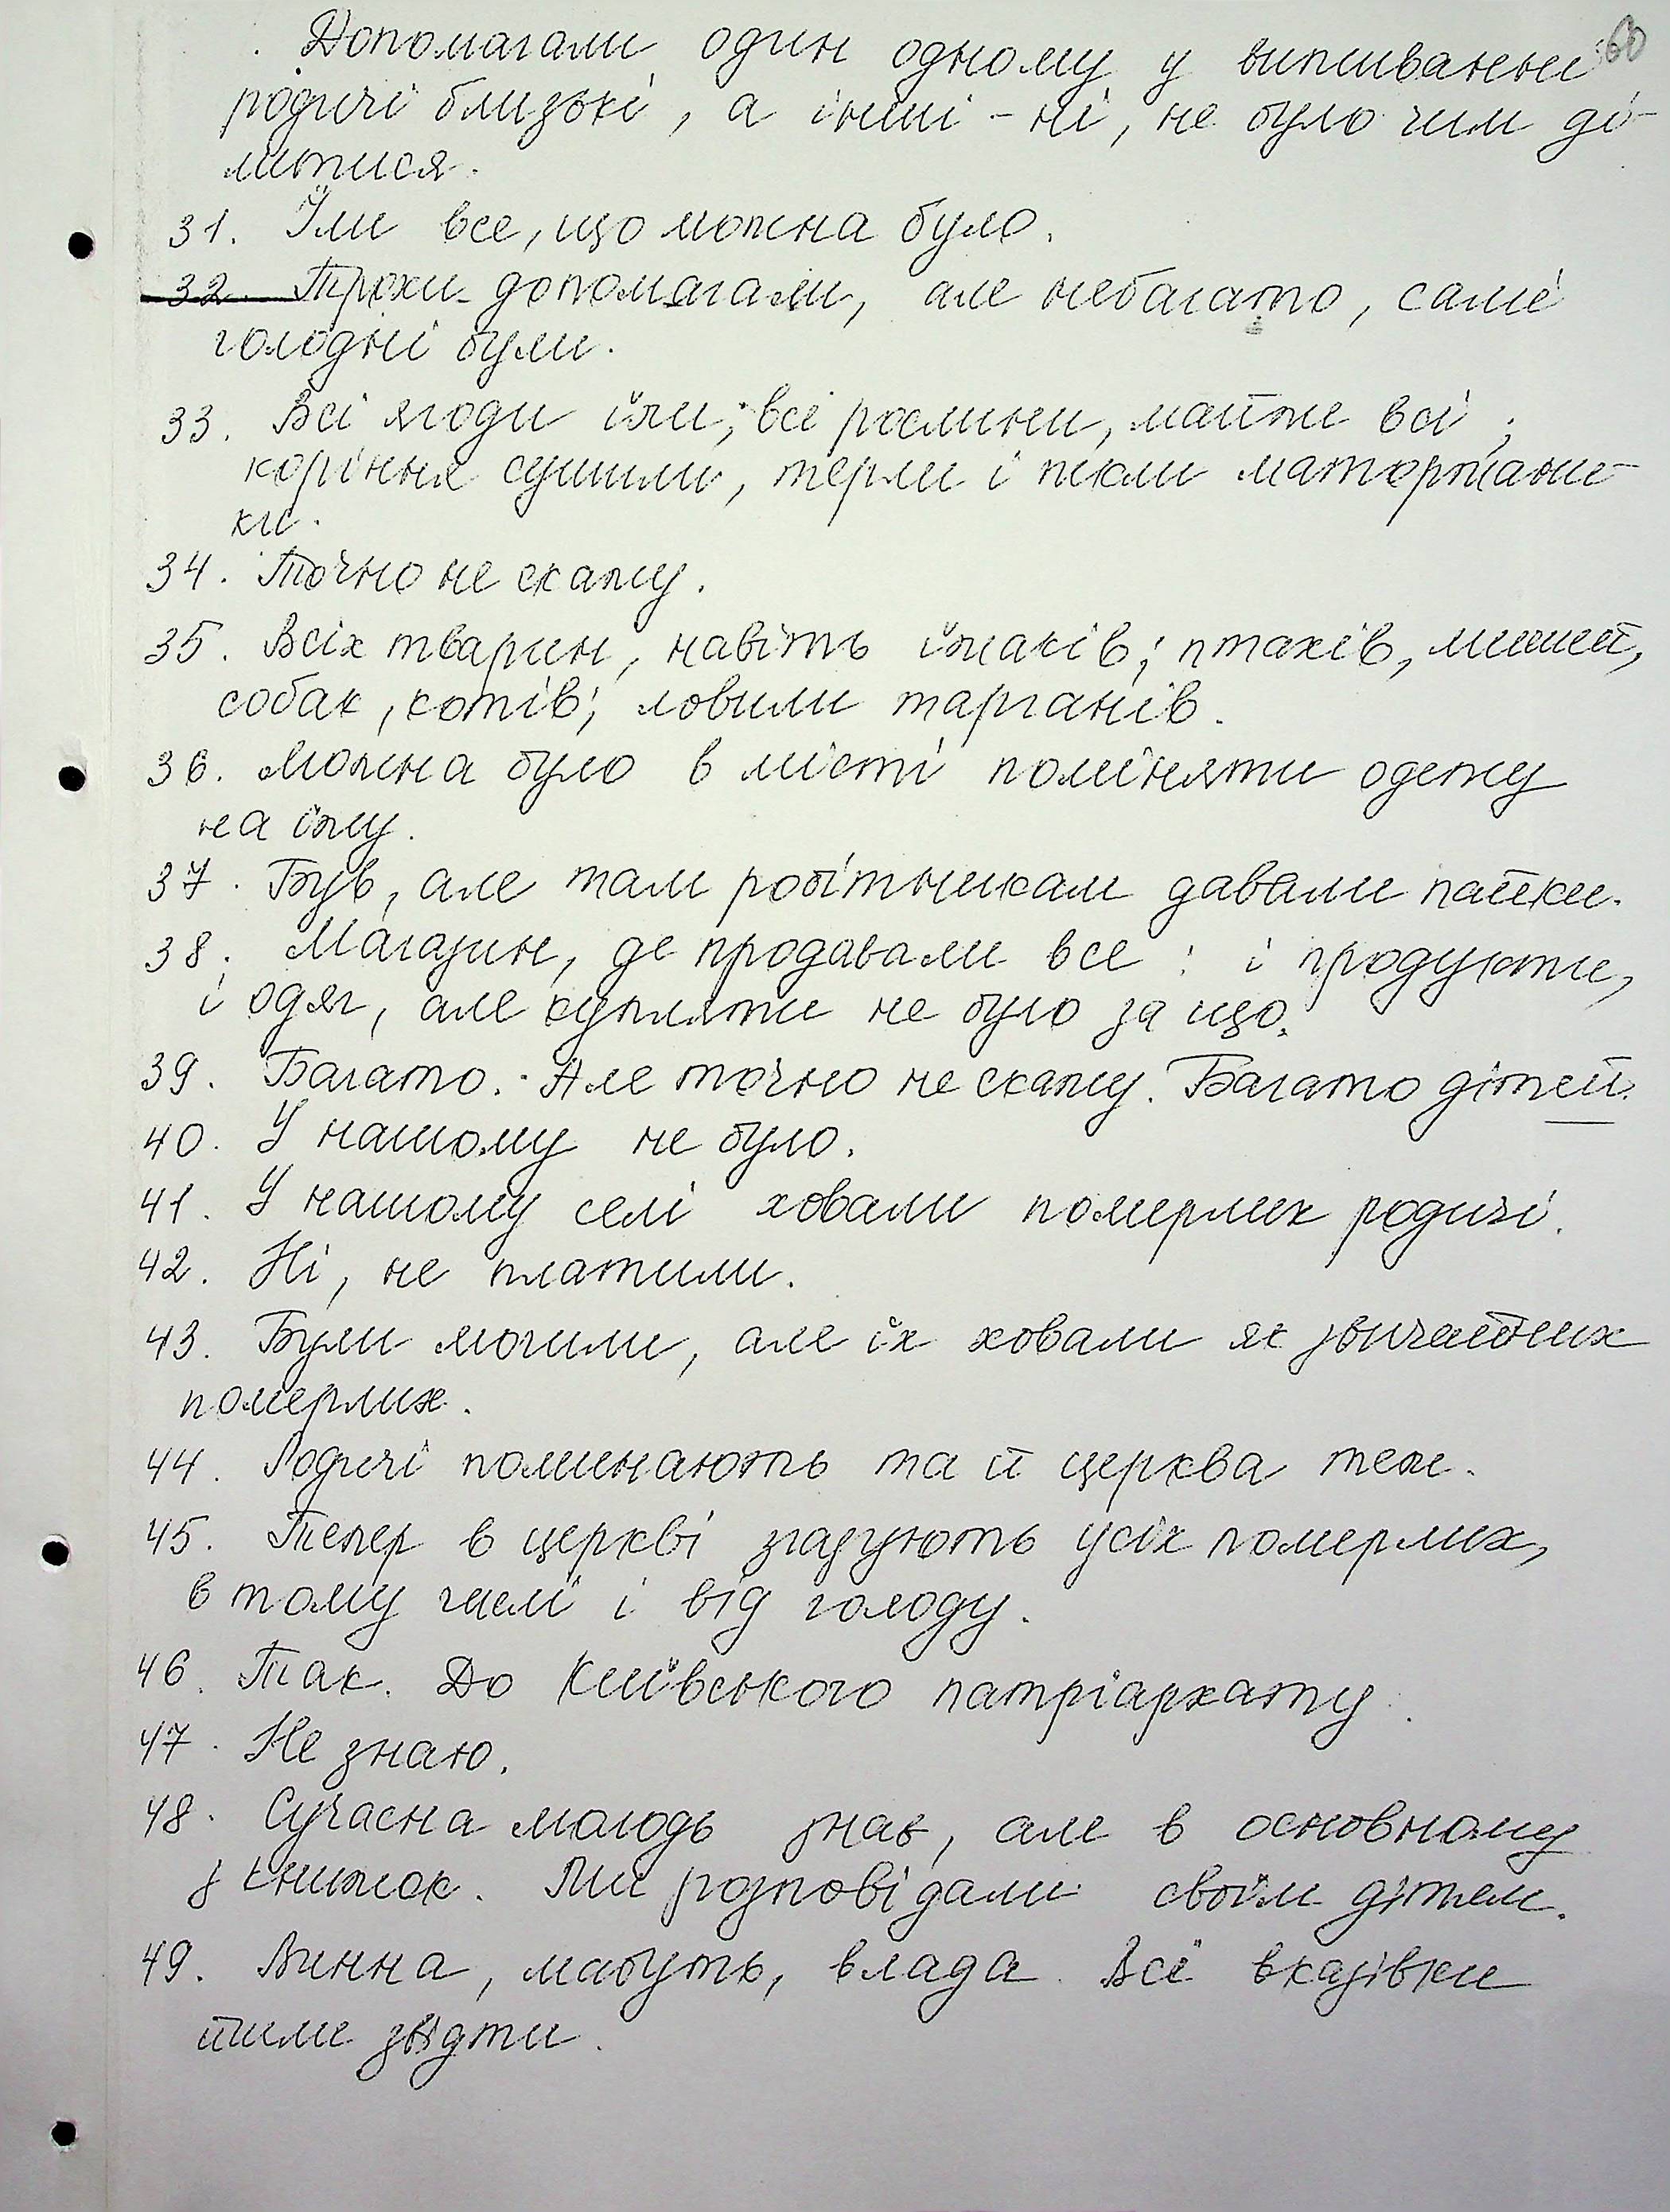 Допомагали один одному у виживанни 60
родичі близькі, а інші - ні, не було чим ді-
литися.
31. Їли все, що можна було.
32. Трохи допомагали, але небагато, самі
голодні були.
33. Всі ягоди їли; всі рослини, майже всі;
коріння сушили, терли і пекли маторжани-
ки.
34. Точно не скажу.
35. Всіх тварин, навіть їжаків; птахів, мишей,
собак, котів; ловили тарганів.
36. Можна було в місті поміняти одежу
на їжу.
37. Був, але там робітникам давали пайки.
38. Магазин, де продавали все: і продукти,
і одяг, але купляти не було за що.
39. Багато. Але точно не скажу. Багато дітей.
40. У нашому не було.
41. У нашому селі ховали померлих родичі.
42. Ні, не платили.
43. Були могили, але їх ховали як звичайних
померлих.
44. Родичі поминають та й церква теж.
45. Тепер в церкві згадують усіх померлих,
в тому числі і від голоду.
46. Так. До Київського патріархату.
47. Не знаю.
48. Сучасна молодь знає, але в основному
з книжок. Ми розповідали своїм дітям.
49. Винна, мабуть, влада. Всі вказівки
йшли звідти.